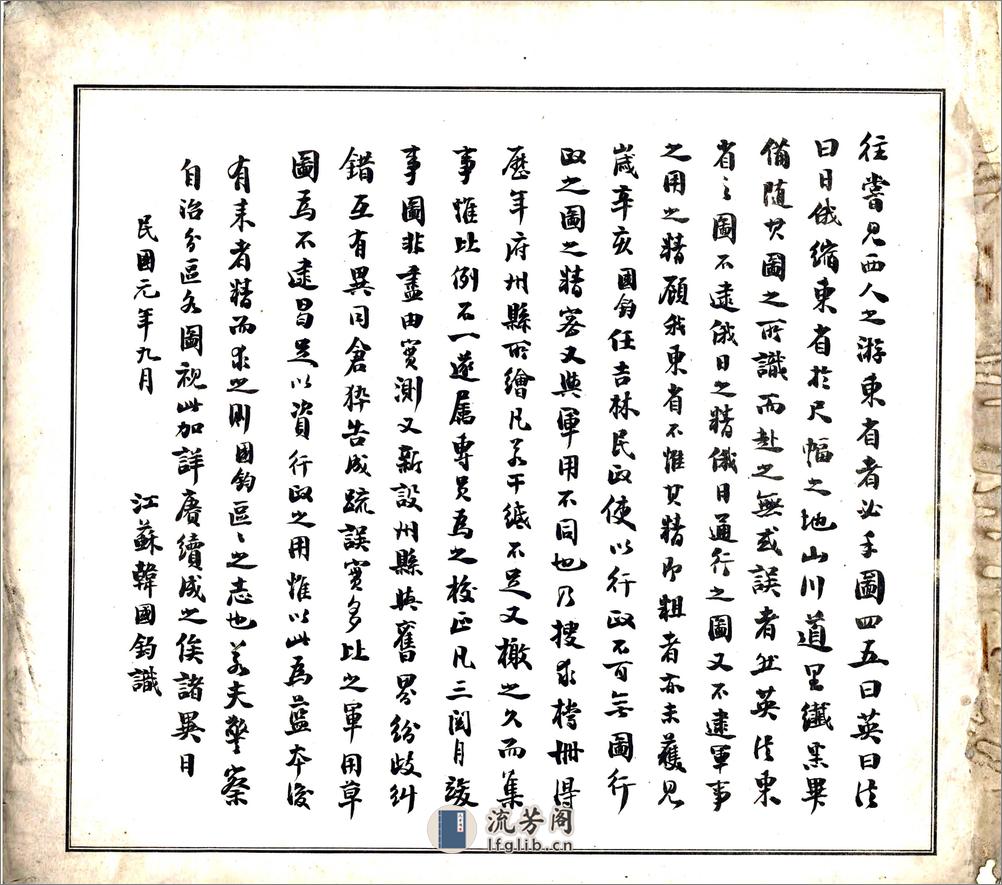 往嘗見西人之游東省者必手圖四五曰英曰法
曰日俄縮東省於尺幅之地山川道里纖悉畢
備隨其圖之所識而赴之無或誤者然英法東
省之圖不逮俄日之精俄日通行之圖又不逮軍事
之用之精顧我東省不惟其精即粗者亦未獲見
歲辛亥國鈞任吉林民政使以行政不可無圖行
政之圖之精審又與軍用不同也乃搜求檔冊得
歷年府州縣所繪凡若干紙不足又檄之久而集
事惟比例不一遂屬專員為之校正凡三閱月竣
事圖非盡由實測又新設州縣與舊界紛歧糾
錯互有異同倉猝告成疏誤實多比之軍用草
圖為不逮曷足以資行政之用惟以此為藍本後
有來者精而求之則國鈞區々之志也若夫警察
自治分區各圖視此加詳賡續成之俟諸異日
民國元年九月
江蘇韓國鈞識
流芳阁
lfglib.cn